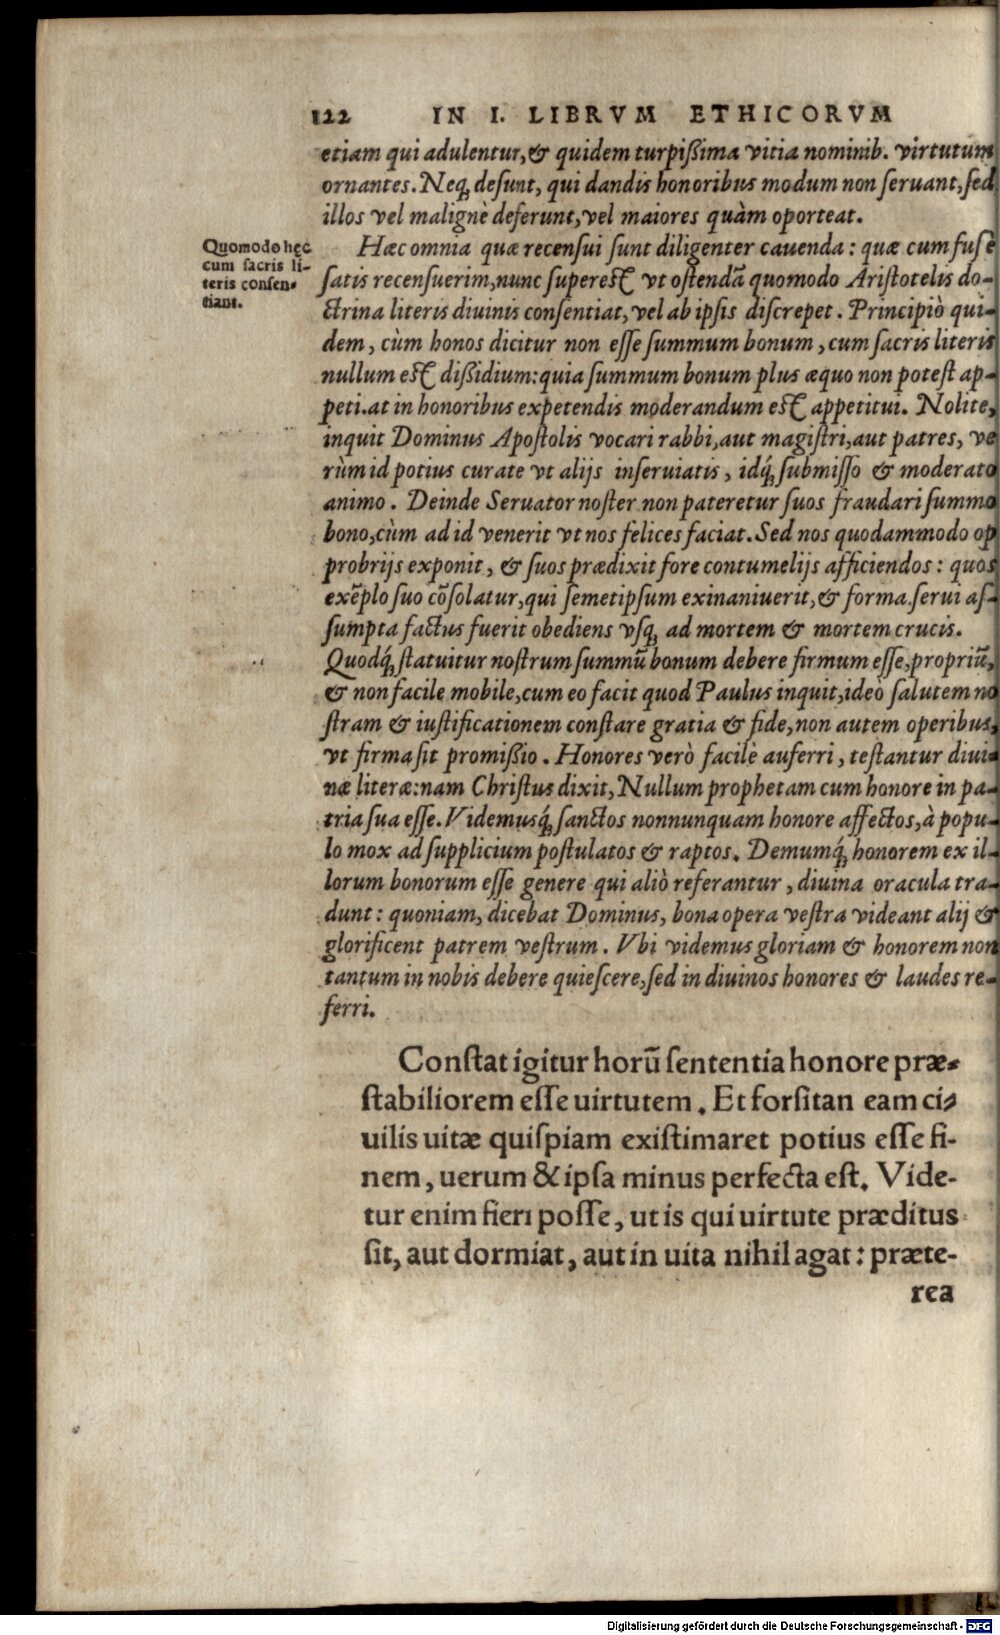 122 IN I. LIBRVM ETHICORVM
etiam qui adulentur, & quidem turpißima vitia nominib. virtutum
ornantes. Neq; desunt, qui dandis honoribus modum non seruant, sed
illos vel malignè deferunt, vel maiores quàm oporteat.
Quomodo hęc
cum sacris li-
teris consen-
tiant.
Hæc omnia quæ recensui sunt diligenter cauenda: quæ cum fuse
satis recensuerim, nunc superest vt ostendā quomodo Aristotelis do-
ctrina literis diuinis consentiat, vel ab ipsis discrepet. Principiò qui-
dem, cùm honos dicitur non esse summum bonum, cum sacris literis
nullum est dißidium: quia summum bonum plus æquo non potest ap-
peti. at in honoribus expetendis moderandum est appetitui. Nolite,
inquit Dominus Apostolis vocari rabbi, aut magistri, aut patres, ve
rùm id potius curate vt alijs inseruiatis, idq́; submisso & moderato
animo. Deinde Seruator noster non pateretur suos fraudari summo
bono, cùm ad id venerit vt nos felices faciat. Sed nos quodammodo op
probrijs exponit, & suos prædixit fore contumelijs afficiendos: quos
exēplo suo cōsolatur, qui semetipsum exinaniuerit, & forma serui as-
sumpta factus fuerit obediens vsq; ad mortem & mortem crucis.
Quodq́; statuitur nostrum summū bonum debere firmum esse, propriū,
& non facile mobile, cum eo facit quod Paulus inquit, ideò salutem no
stram & iustificationem constare gratia & fide, non autem operibus,
vt firma sit promißio. Honores verò facilè auferri, testantur diui-
næ literæ: nam Christus dixit, Nullum prophetam cum honore in pa-
tria sua esse. Videmusq́; sanctos nonnunquam honore affectos, à popu-
lo mox ad supplicium postulatos & raptos. Demumq́; honorem ex il-
lorum bonorum esse genere qui aliò referantur, diuina oracula tra-
dunt: quoniam, dicebat Dominus, bona opera vestra videant alij &
glorificent patrem vestrum. Vbi videmus gloriam & honorem non
tantum in nobis debere quiescere, sed in diuinos honores & laudes re-
ferri.
Constat igitur horū sententia honore præ-
stabiliorem esse uirtutem. Et forsitan eam ci-
uilis uitæ quispiam existimaret potius esse fi-
nem, uerum & ipsa minus perfecta est. Vide-
tur enim fieri posse, ut is qui uirtute præditus
sit, aut dormiat, aut in uita nihil agat: præte-
rea
Digitalisierung gefördert durch die Deutsche Forschungsgemeinschaft - DFG